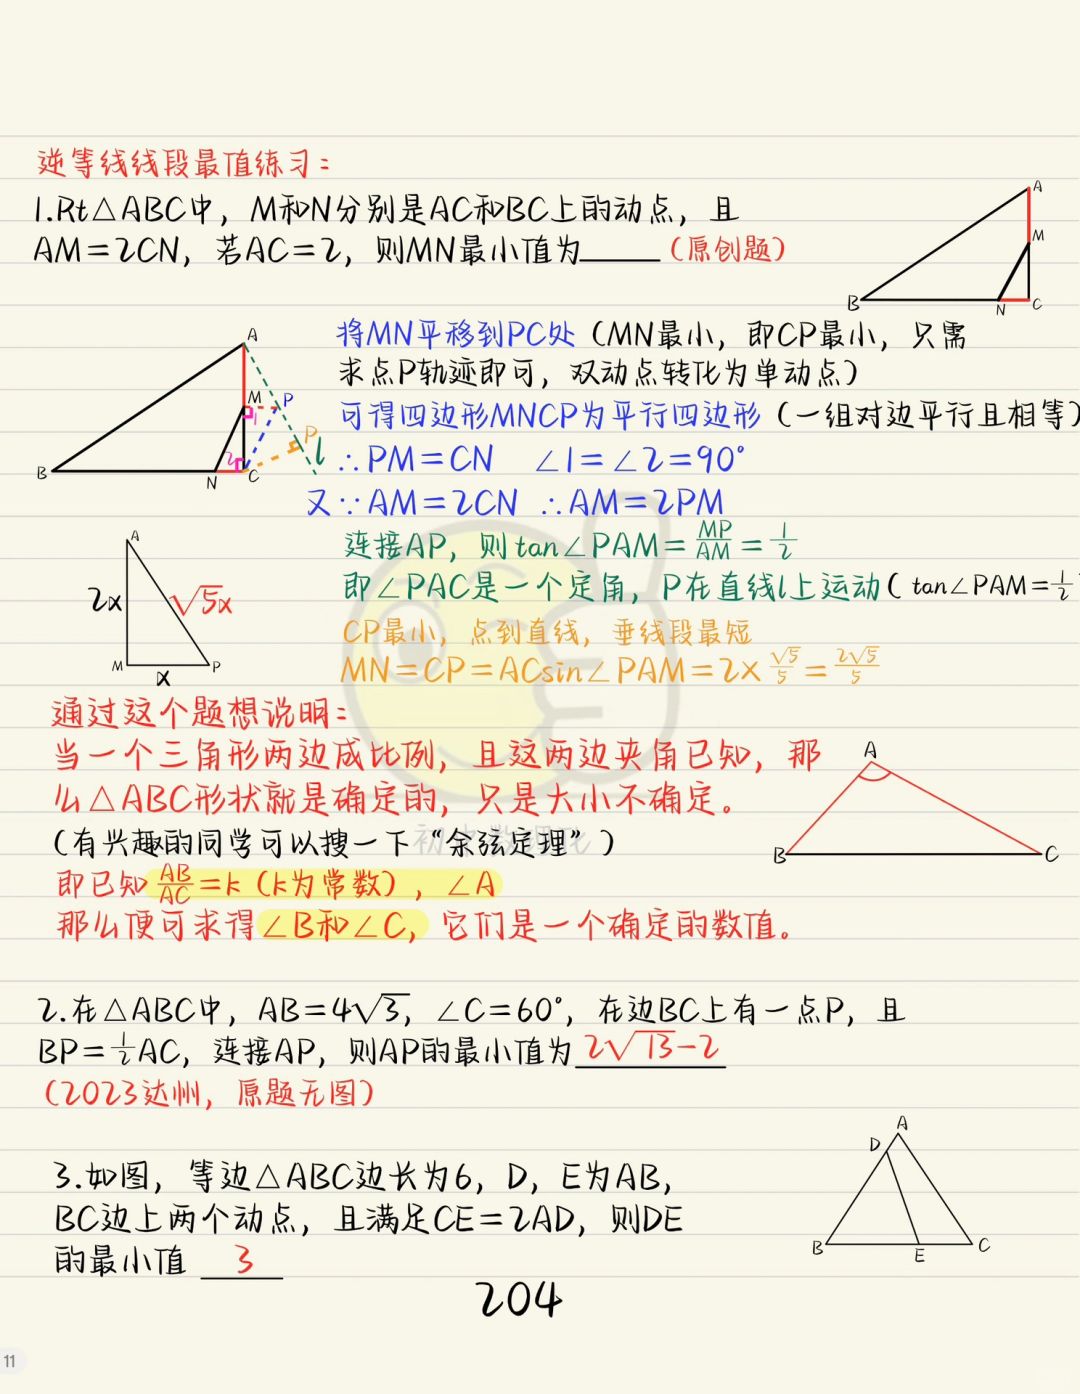 逆等线线段最值练习：
1.Rt△ABC中，M和N分别是AC和BC上的动点，且
AM=2CN，若AC=2，则MN最小值为____（原创题）
A
M
B
N
C
将MN平移到PC处（MN最小，即CP最小，只需
求点P轨迹即可，双动点转化为单动点）
可得四边形MNCP为平行四边形（一组对边平行且相等）
∴PM=CN ∠1=∠2=90°
又∵AM=2CN ∴AM=2PM
A
M
P
1
P
l
2
B
N
C
连接AP，则tan∠PAM=MP/AM=1/2
即∠PAC是一个定角，P在直线l上运动（tan∠PAM=1/2
CP最小，点到直线，垂线段最短
MN=CP=ACsin∠PAM=2×√5/5=2√5/5
A
2x
√5x
M
P
x
通过这个题想说明：
当一个三角形两边成比例，且这两边夹角已知，那
么△ABC形状就是确定的，只是大小不确定。
（有兴趣的同学可以搜一下“余弦定理”）
即已知AB/AC=k（k为常数），∠A
那么便可求得∠B和∠C，它们是一个确定的数值。
A
B
C
初中数理化
2.在△ABC中，AB=4√3，∠C=60°，在边BC上有一点P，且
BP=1/2AC，连接AP，则AP的最小值为2√13-2
（2023达州，原题无图）
3.如图，等边△ABC边长为6，D，E为AB，
BC边上两个动点，且满足CE=2AD，则DE
的最小值 3
A
D
B
E
C
204
11